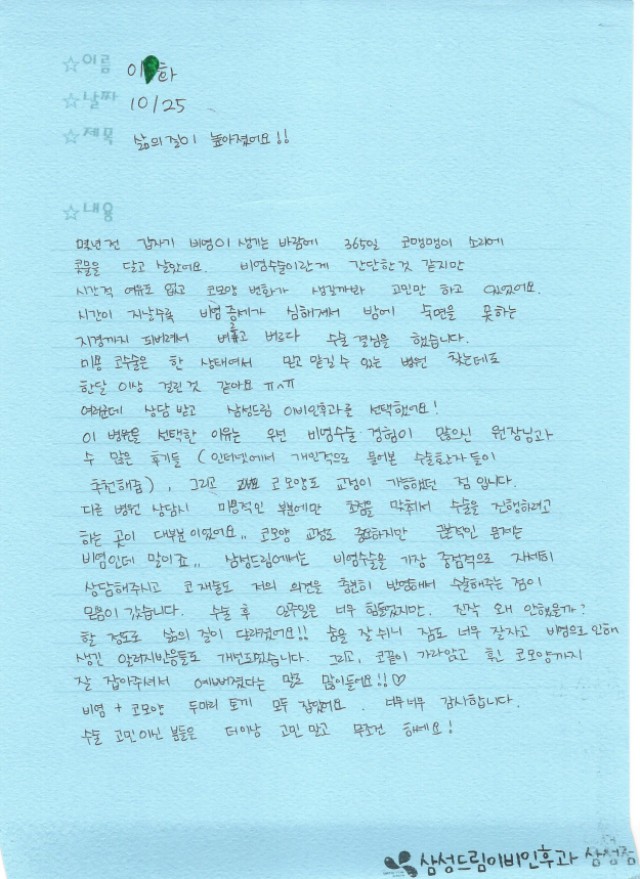 ☆이름 이 화
☆날짜 10/25
☆제목 삶의 질이 높아졌어요!!
☆내용
몇년 전 갑자기 비염이 생기는 바람에 365일 코맹맹이 소리에
콧물을 달고 살았어요. 비염수술이란게 간단한것 같지만
시간적 여유도 없고 코모양 변화가 생길까봐 고민만 하고 있었어요.
시간이 지날수록 비염 증세가 심해져서 밤에 숙면을 못하는
지경까지 되버려서 벼르고 벼르다 수술 결심을 했습니다.
미용 코수술은 한 상태여서 믿고 맡길 수 있는 병원 찾는데도
한달 이상 걸린것 같아요 ㅠ^ㅠ
여러군데 상담 받고 삼성드림 이비인후과를 선택했어요!
이 병원을 선택한 이유는 우선 비염수술 경험이 많으신 원장님과
수 많은 후기들 (인터넷에서 개인적으로 물어본 수술환자들이
추천해줌), 그리고 코모양도 교정이 가능했던 점 입니다.
다른 병원 상담시 미용적인 부분에만 초점을 맞춰서 수술을 진행하려고
하는 곳이 대부분이었어요.. 코모양 교정도 중요하지만 근본적인 문제는
비염인데 말이죠.. 삼성드림에서는 비염수술을 가장 중점적으로 자세히
상담해주시고 코 재술도 저의 의견을 충분히 반영해서 수술해주는 점이
믿음이 갔습니다. 수술 후 일주일은 너무 힘들었지만, 진작 왜 안했을까?
할 정도로 삶의 질이 달라졌어요!! 숨을 잘 쉬니 잠도 너무 잘자고 비염으로 인해
생긴 알러지반응들도 개선되었습니다. 그리고, 코끝이 가라앉고 휜 코모양까지
잘 잡아주셔서 예뻐졌다는 말도 많이들어요!!♡
비염 + 코모양 두마리 토끼 모두 잡았어요. 너무너무 감사합니다.
수술 고민이신 분들은 더이상 고민 말고 무조건 하세요!
삼성드림이비인후과 삼성점